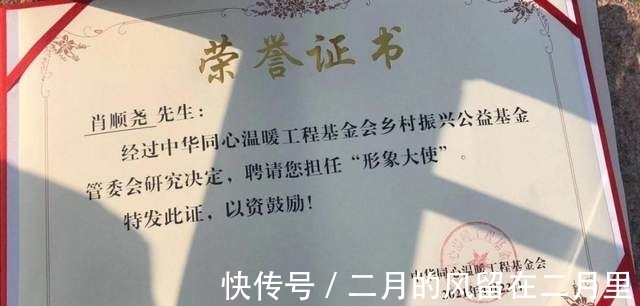 荣誉证书
肖顺尧 先生:
经过中华同心温暖工程基金会乡村振兴公益基金
管委会研究决定，聘请您担任“形象大使”。
特发此证，以资鼓励!
中华同心温暖工程基金会
快传号 / 二月的风留在二月里